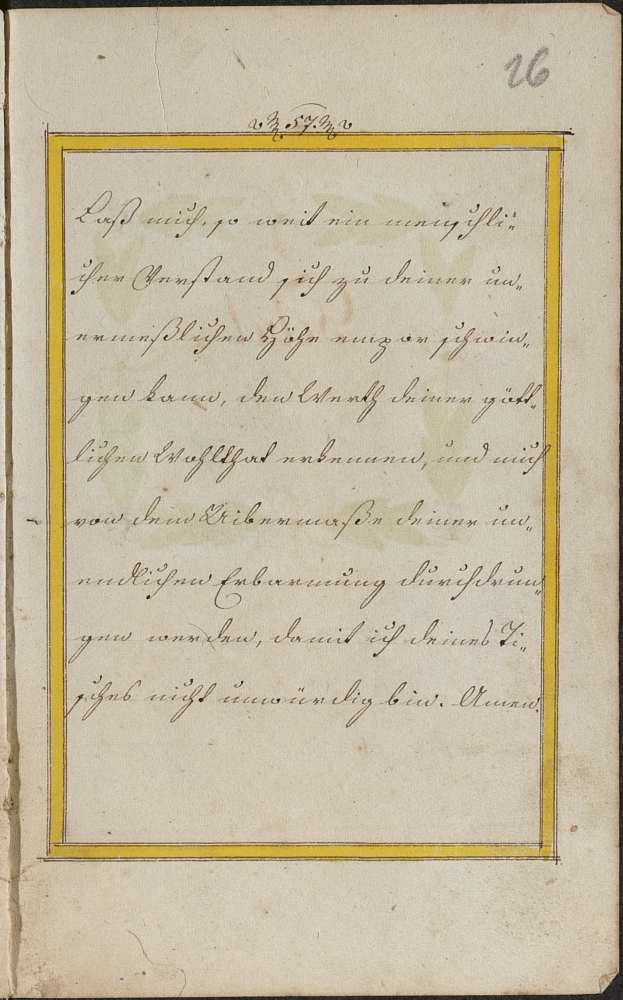 26
57.
Laß mich, so weit ein menschli=
cher Verstand sich zu deiner un=
ermeßlichen Höhe empor schwin=
gen kann, den Werth deiner gött=
lichen Wohlthat erkennen, und mich
von dem Uibermaße deiner un=
endlichen Erbarmung durchdrun=
gen werden, damit ich deines Ti=
sches nicht unwürdig bin. Amen.